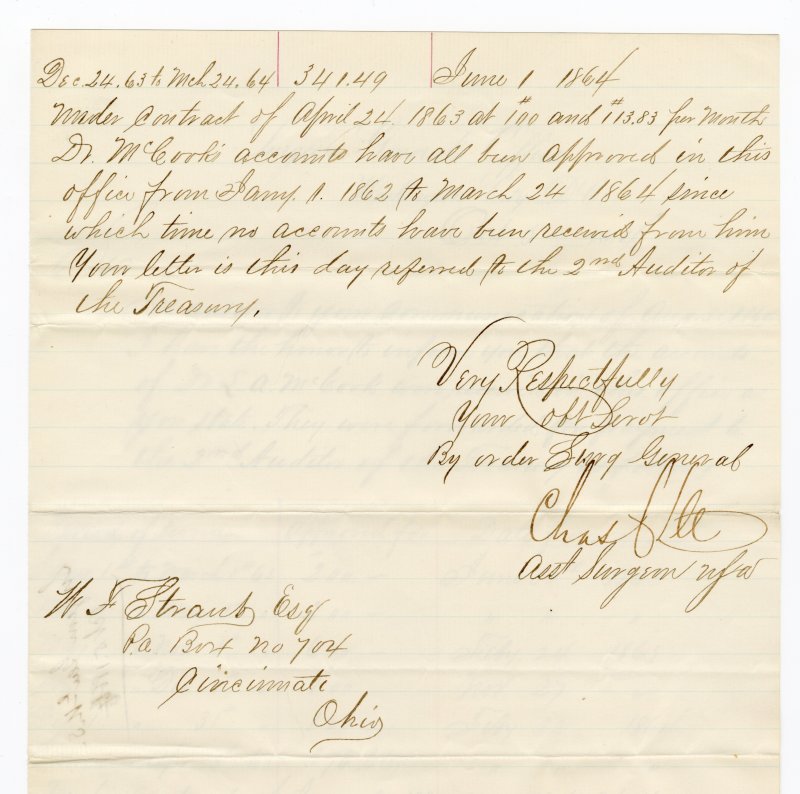 Dec. 24. 63 to Mch 24. 64 341.49 June 1 1864
Under contract of April 24. 1863 at $100 and $113.83 per Month
Dr. McCook's accounts have all been approved in this
office from Jany. 1. 1862 to March 24 1864 since
which time no accounts have been received from him
Your letter is this day referred to the 2nd Auditor of
the Treasury.
Very Respectfully
Your obt Servt
By order Surg General
Chas
Asst Surgeon USA
W F Straub Esq
P.O. Box No 704
Cincinnati
Ohio